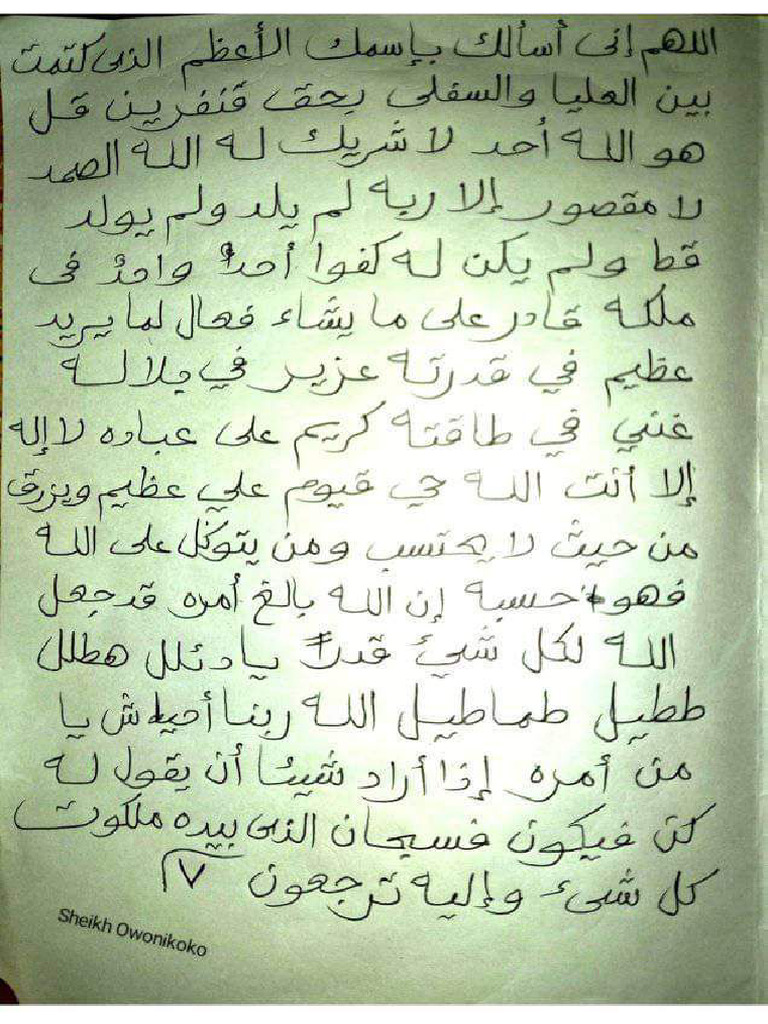 اللهم إنى أسألك بإسمك الأعظم الذى كتمت
بين العليا والسفلى بحق قنفرين قل
هو الله أحد لا شريك له الله الصمد
لا مقصور إلا ربه لم يلد ولم يولد
قط ولم يكن له كفوا أحدٌ واحدٌ فى
ملكه قادر على ما يشاء فعال لما يريد
عظيم في قدرته عزيز في جلاله
غني في طاقته كريم على عباده لا إله
إلا أنت الله حي قيوم علي عظيم ويزرق
من حيث لا يحتسب ومن يتوكل على الله
فهو حسبه إن الله بالغ أمره قد جعل
الله لكل شيئ قدرًا يا دئلل هطلل
ططيل طماطيل الله ربنا يا
من أمره إذا أراد شيئا أن يقول له
كن فيكون فسبحان الذى بيده ملكوت
كل شىء وإليه ترجعون ٧
Sheikh Owonikoko